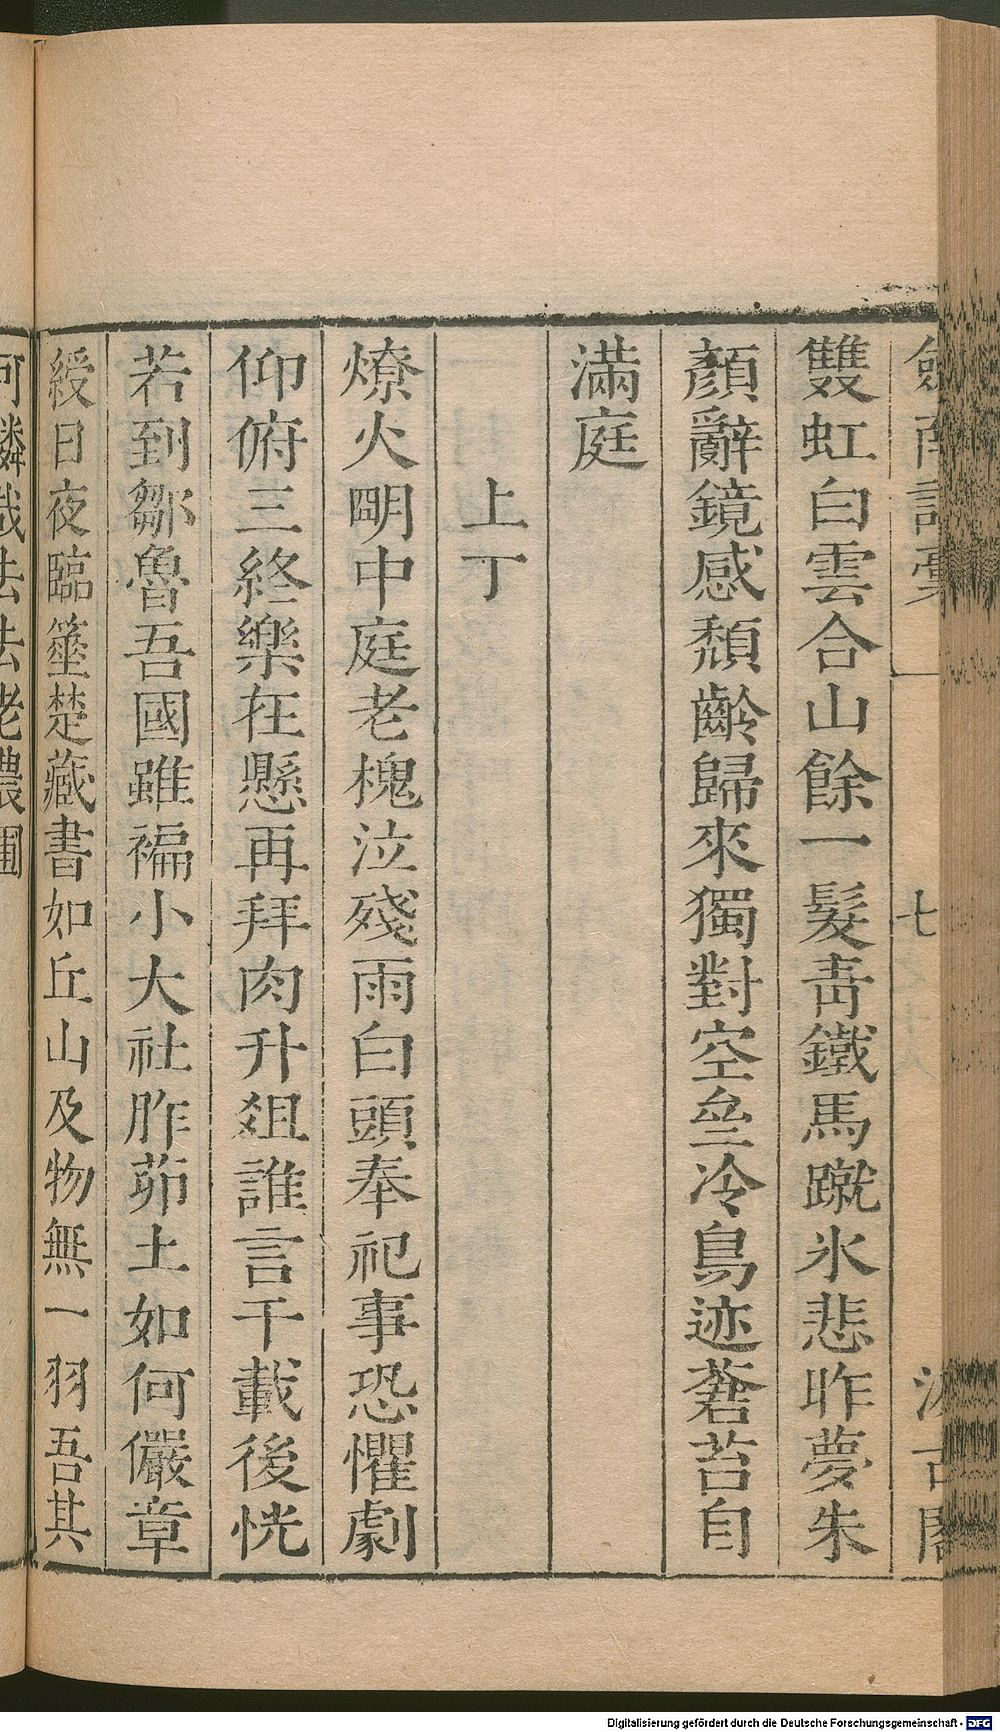 劒南詩稾 七 汲古閣
雙虹白雲合山餘一髮青鐵馬蹴氷悲昨夢朱
顏辭鏡感頹齡歸來獨對空壘冷鳥迹蒼苔自
滿庭
上丁
燎火朙中庭老槐泣殘雨白頭奉祀事恐懼劇
仰俯三終樂在懸再拜肉升爼誰言千載後恍
若到鄒魯吾國雖褊小大社胙茆土如何儼章
綬日夜臨箠楚藏書如丘山及物無一羽吾其
可 哉去去老農圃
Digitalisierung gefördert durch die Deutsche Forschungsgemeinschaft - DFG